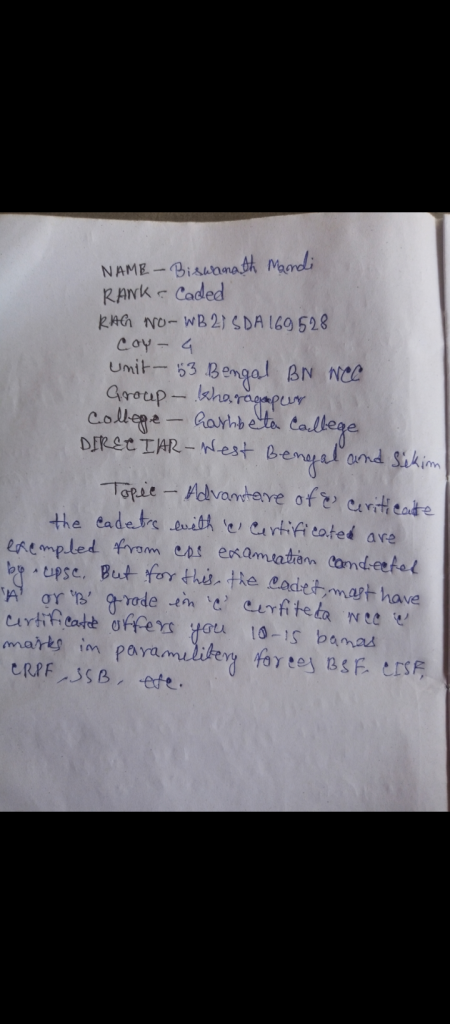 NAME - Biswanath Mandi
RANK - Caded
RAG NO- WB21SDA169528
COY - 4
Unit - 53 Bengal BN NCC
Group - kharagapur
College - Garhbeta Callege
DIRECTIAR - West Bengal and Sikim
Topic - Advantere of 'c' criticate
the cadets with 'c' certificated are
exempled from CDS exameation candected
by UPSC. But for this, the cadet, mast have
'A' or 'B' grade in 'C' cerfiteda NCC 'c'
certificate offers you 10-15 banas
marks in paramelitery forces BSF. CISF,
CRPF, SSB, etc.